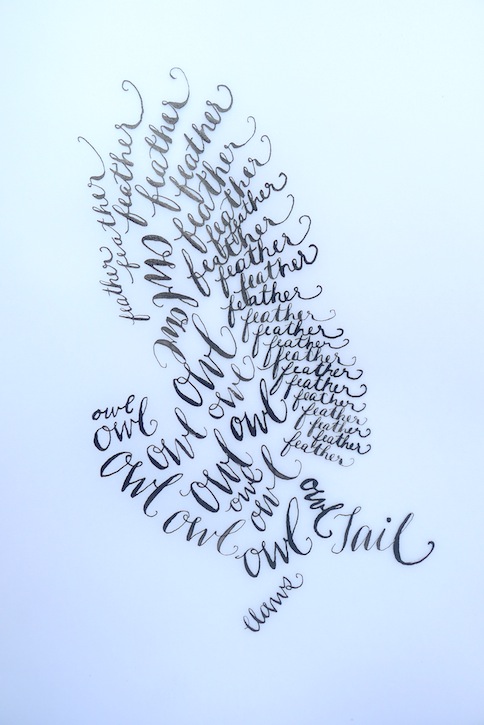 feather
feather
feather
feather
feather
feather
feather
feather
feather
feather
feather
feather
feather
feather
feather
feather
feather
feather
feather
feather
feather
feather
owl
owl
owl
owl
owl
owl
owl
owl
owl
owl
owl
owl
owl
owl
owl
owl
Tail
claws